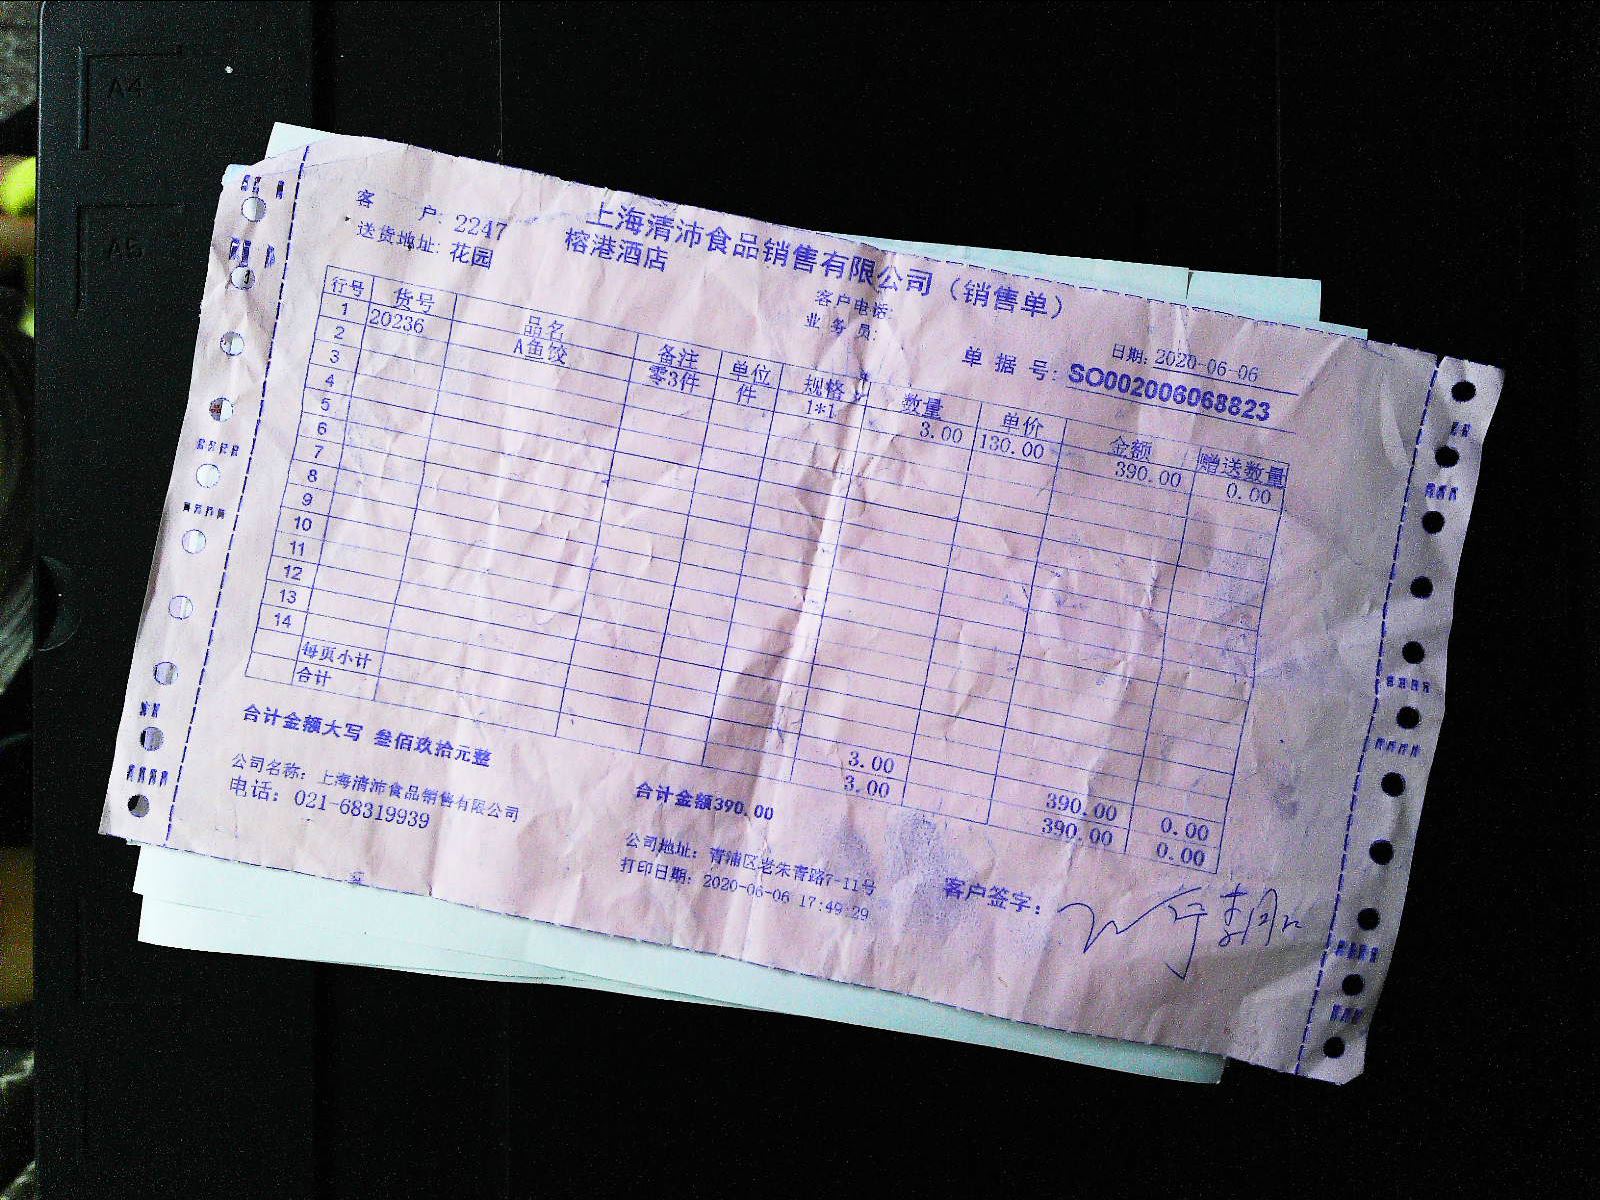 A4
A5
上海清沛食品销售有限公司（销售单）
客 户: 2247 榕港酒店
送货地址: 花园
客户电话:
业 务 员:
日期: 2020-06-06
单 据 号: SO002006068823
行号 货号 品名 备注 单位 规格 数量 单价 金额 赠送数量
1 20236 A鱼饺 零3件 件 1*1 3.00 130.00 390.00 0.00
2
3
4
5
6
7
8
9
10
11
12
13
14
每页小计 3.00 390.00 0.00
合计 3.00 390.00 0.00
合计金额大写 叁佰玖拾元整 合计金额390.00
公司名称: 上海清沛食品销售有限公司 公司地址: 青浦区老朱青路7-11号
电话: 021-68319939 打印日期: 2020-06-06 17:49:29
客户签字: